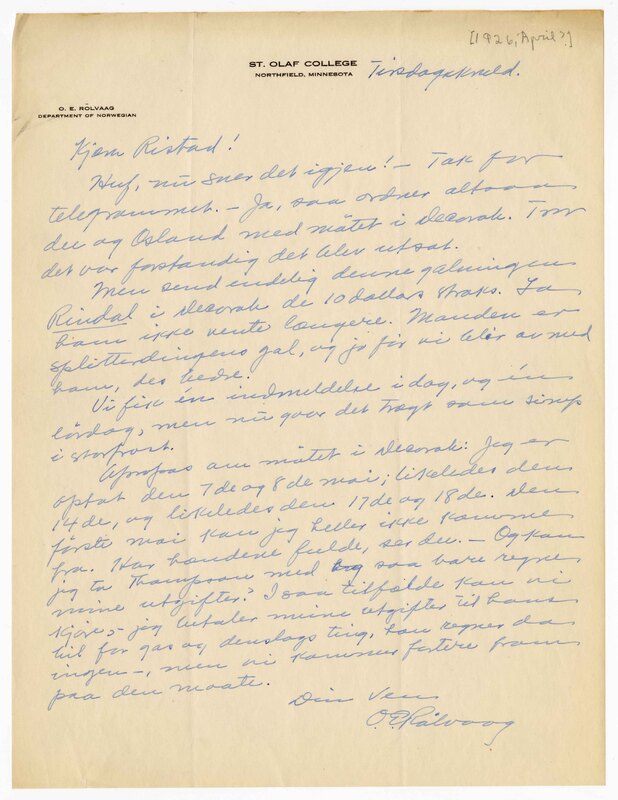 [1926, April?]
ST. OLAF COLLEGE
NORTHFIELD, MINNESOTA
Tirsdagskveld.
O. E. RÖLVAAG
DEPARTMENT OF NORWEGIAN
Kjære Ristad!
Huf, nu sner det igjen! — Tak for
telegrammet. — Ja, saa ordner altsaa
du og Osland med mötet i Decorah. Tror
det var forstandig det blev utsat.
Men send endelig denne galningen
Rindal i Decorah de 10 dollars straks. La
ham ikke vente længere. Manden er
splitterdingens gal, og jo för vi blir av med
ham, des bedre.
Vi fik én indmeldelse i dag, og én
lördag, men nu gaar det trægt som sirup
i storfrost.
Apropos om mötet i Decorah: Jeg er
optat den 7de og 8de mai; likeledes den
14de, og likeledes den 17de og 18de. Den
förste mai kan jeg heller ikke komme
fra. Har hændene fulde, ser du. — Og kan
jeg ta Thompson med og saa bare regne
mine utgifter? I saa tilfælde kan vi
kjöre, — jeg betaler mine utgifter til hans
bil for gas og denslags ting, han regner da
ingen —, men vi kommer fortere fram
paa den maate.
Din Ven
O.E. Rölvaag